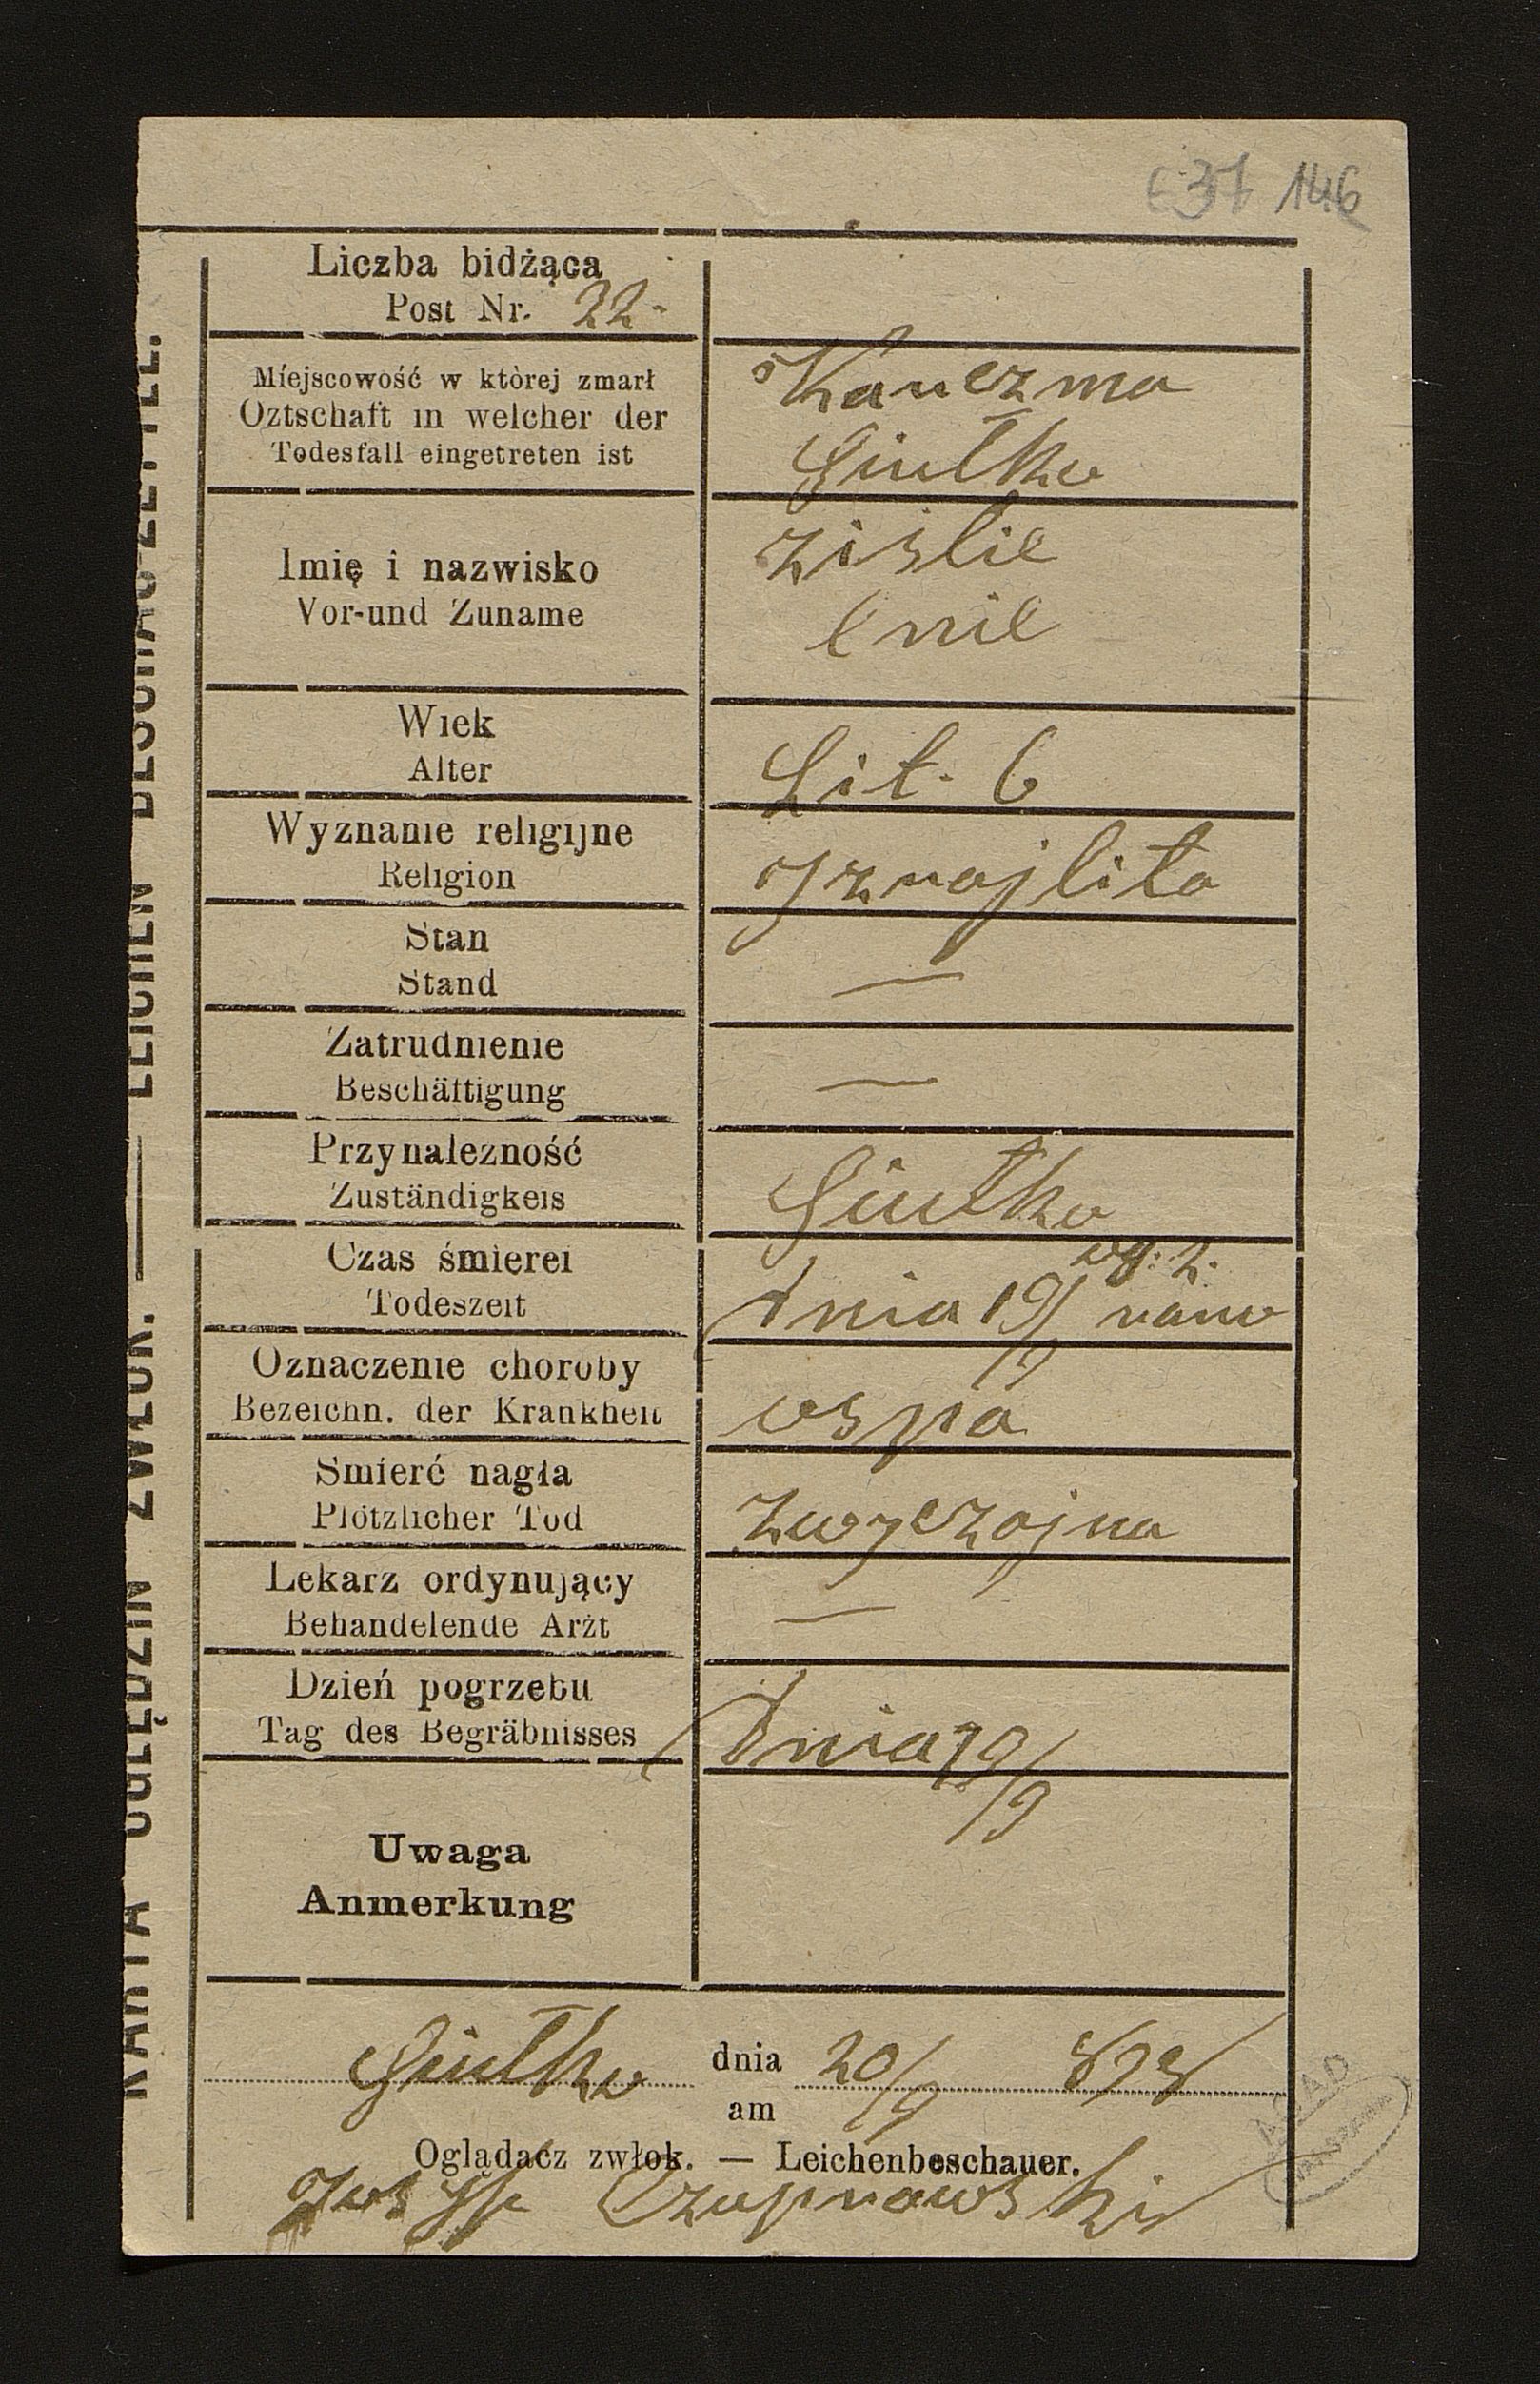 146
Liczba bidżąca
Post Nr. 22-
Miejscowość w której zmarł
Oztschaft in welcher der
Todesfall eingetreten ist
Karczma
Imię i nazwisko
Vor-und Zuname
Zislie
Enie
Wiek
Alter
Lit. 6
Wyznanie religijne
Religion
Izrajlita
Stan
Stand
—
Zatrudnienie
Beschäftigung
—
Przynalezność
Zuständigkeis
Czas śmierei
Todeszeit
dnia 19/9 rano
Oznaczenie choroby
Bezeichn. der Krankheit
ospa
Smierć nagła
Plötzlicher Tod
zwyczajna
Lekarz ordynujący
Behandelende Arźt
—
Dzień pogrzebu
Tag des Begräbnisses
dnia 19/9
Uwaga
Anmerkung
dnia 20/9
am
Oglądacz zwłok. — Leichenbeschauer.
Czuprawski
KARTA OGLĘDZIN ZWŁOK. — LEICHEN BESCHAU-ZETTEL.